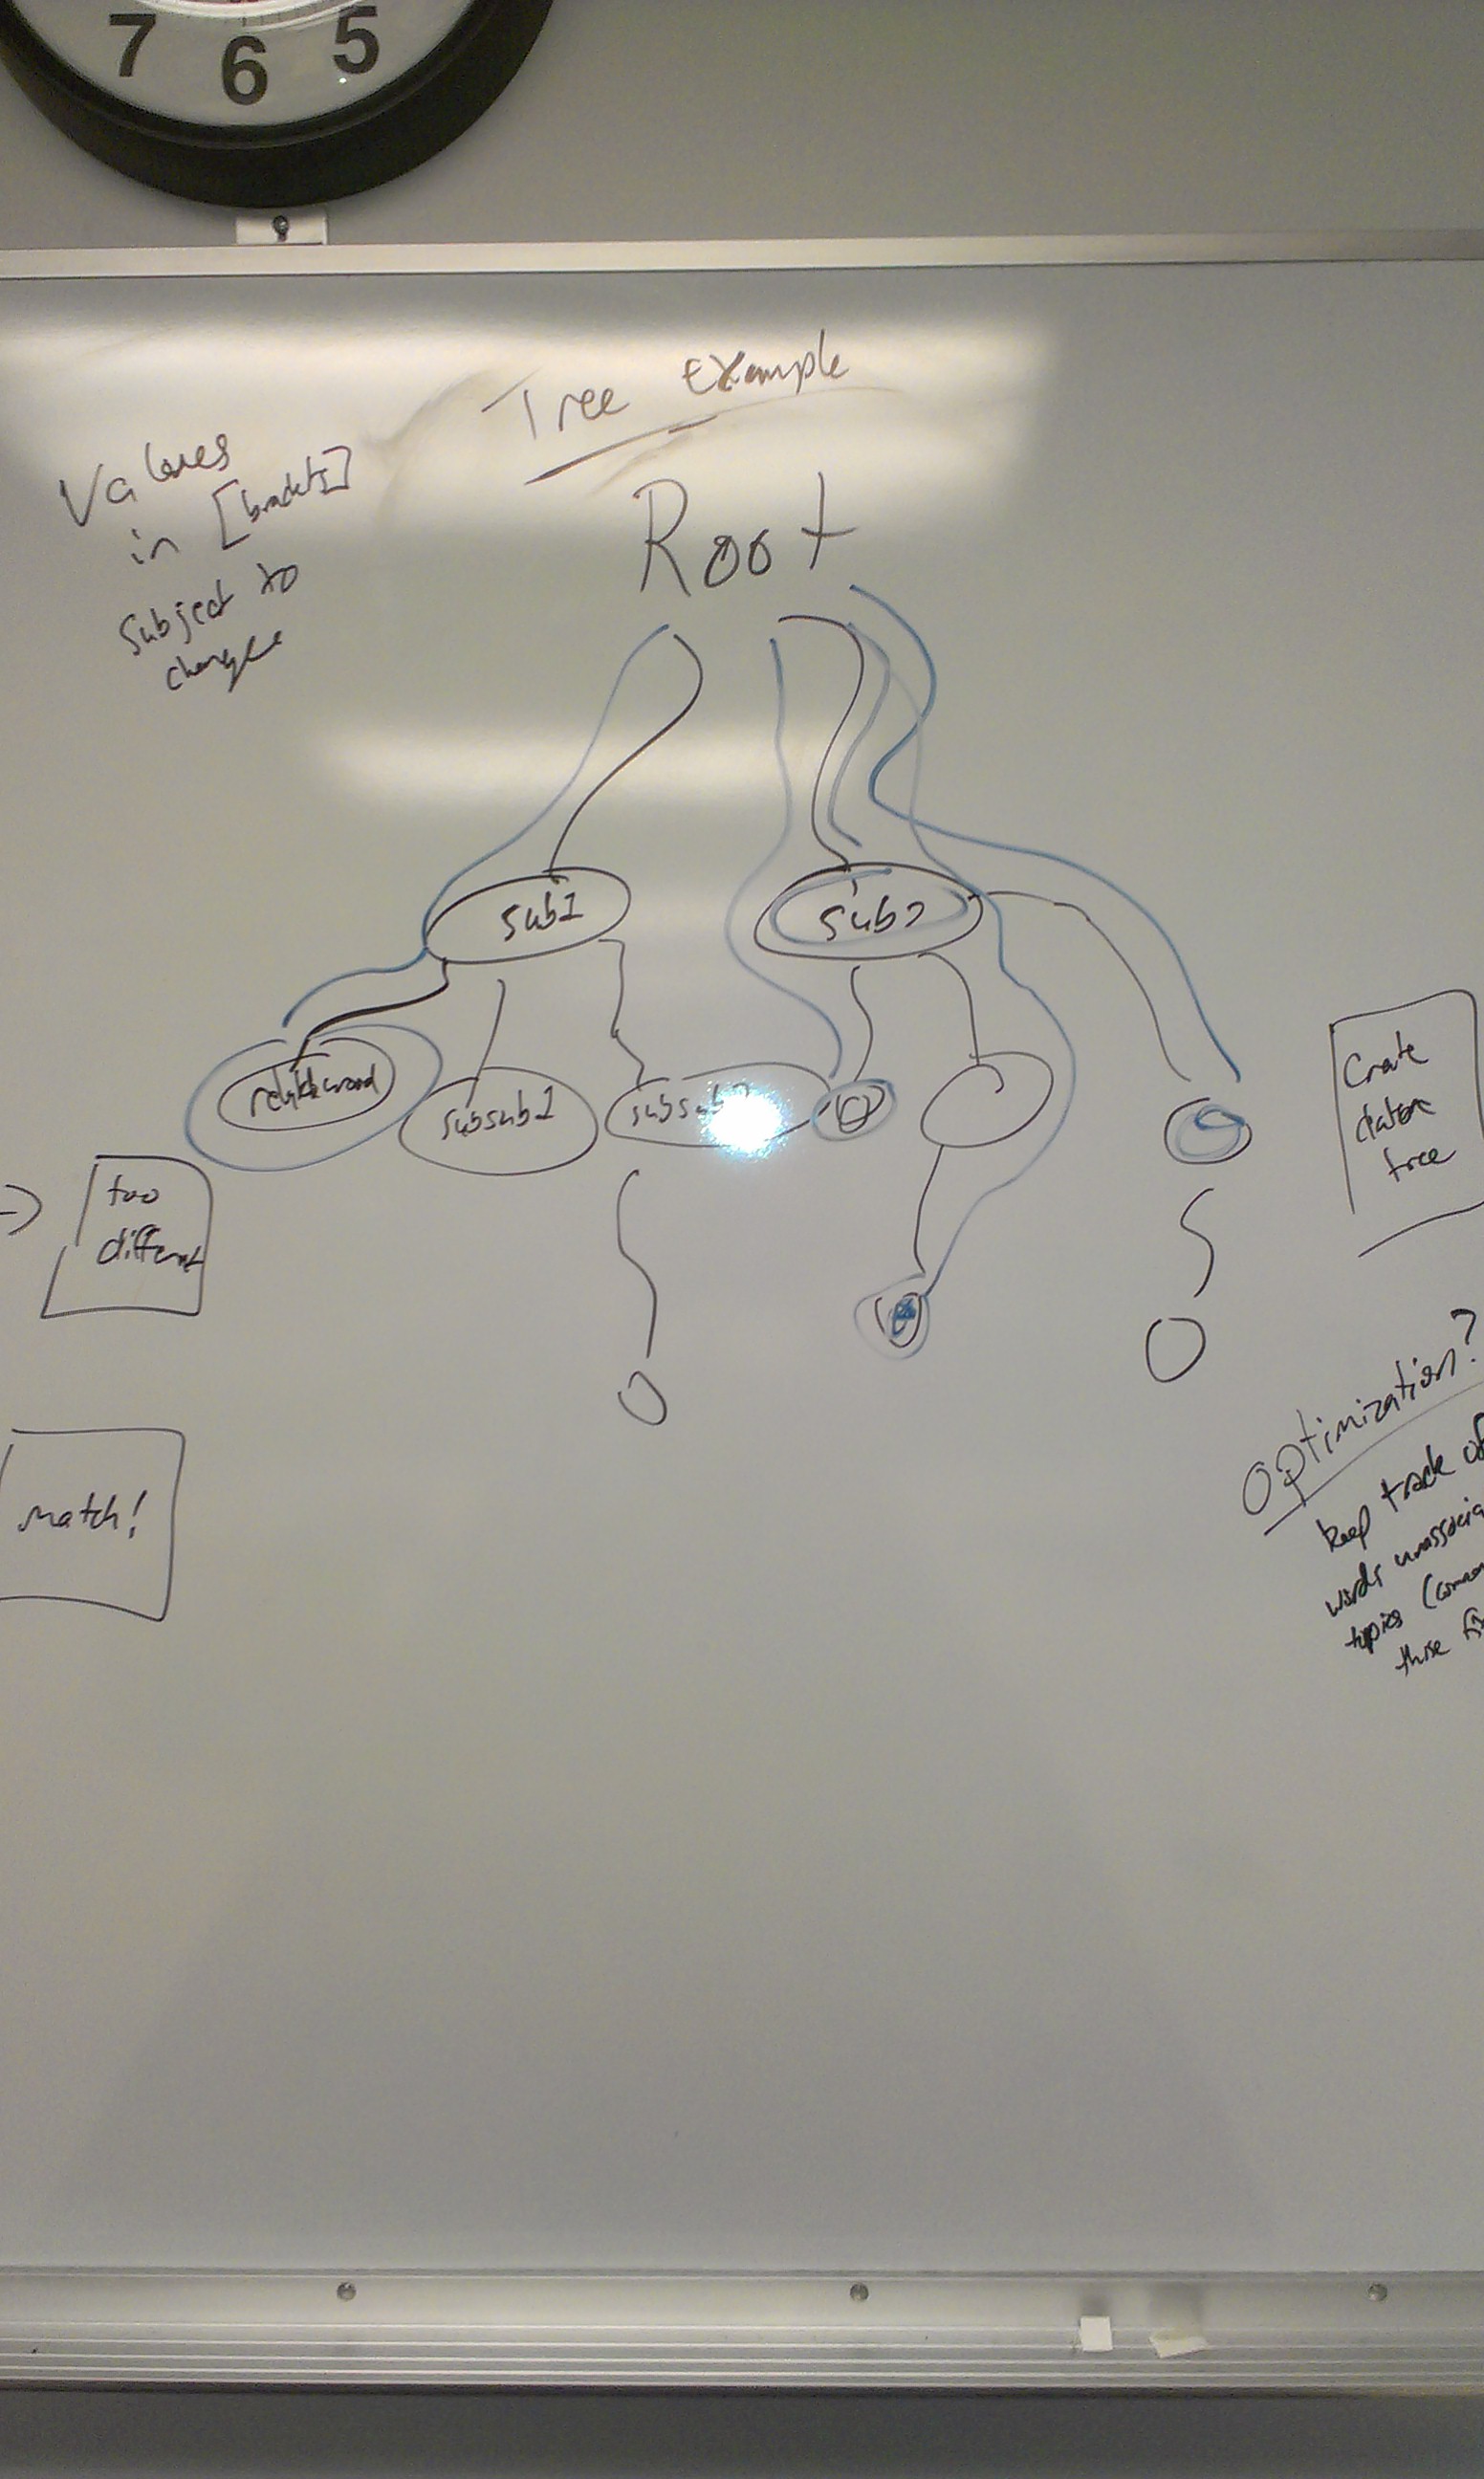 7 6 5
Tree Example
Values
in [brackets]
Subject to
change
Root
sub1
sub2
subsub1
subsub2
too
different
match!
Create
tree
Optimization?
keep track of
words
topics
those